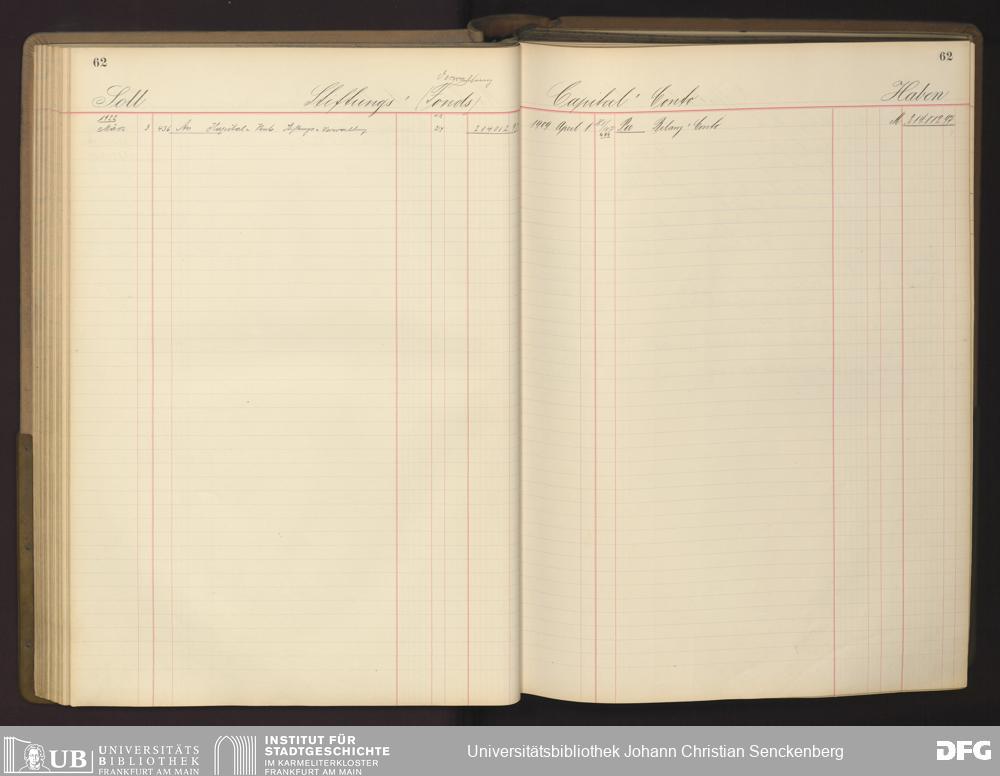 62
Verwaltung
Soll Stiftungs- (Fonds)
März 3 436 An Kapital-Konto Stiftungs-Verwaltung 24
62
Capital-Conto Haben
1909 April 1 Per Bilanz-Conto M
UB UNIVERSITÄTS
BIBLIOTHEK
FRANKFURT AM MAIN
INSTITUT FÜR
STADTGESCHICHTE
IM KARMELITERKLOSTER
FRANKFURT AM MAIN
Universitätsbibliothek Johann Christian Senckenberg
DFG